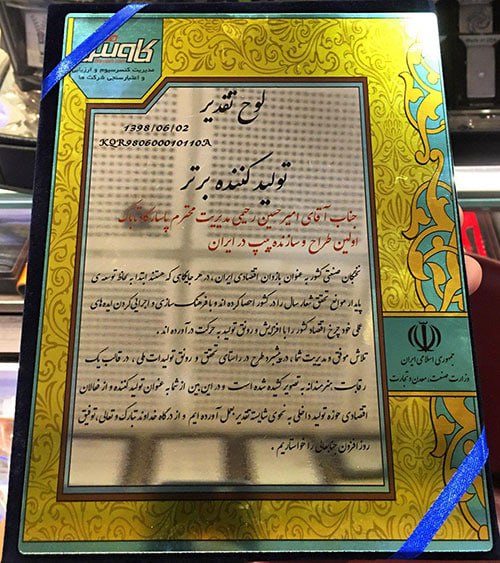 کاوش
مدیریت کنسرسیوم و ارزیابی
و اعتبارسنجی شرکت ها
لوح تقدیر
1398/06/02
KQR980600010110A
تولید کننده برتر
جناب آقای امیرحسین رحیمی مدیریت محترم پاسارگاد تاباک
اولین طراح و سازنده پیپ در ایران
نخبگان صنعتی کشور به عنوان بازوان اقتصادی ایران، در هر جایگاهی که هستند ابتدا به لحاظ توسعه ی
پایدار موانع تحقق شعار سال را در کشور احصا کرده اند و با فرهنگ سازی و اجرایی کردن ایده های
عملی خود چرخ اقتصاد کشور را با افزایش و رونق تولید به حرکت در آورده اند .
تلاش موفق و مدیریت شما، در پیشبرد طرح در راستای تحقق و رونق تولیدات ملی ، در قالب یک
رقابت هنرمندانه به تصویر کشیده شده است و در این بین از شما به عنوان تولید کننده و از فعالان
اقتصادی حوزه تولید داخلی به نحوی شایسته تقدیر بعمل آورده ایم و از درگاه خداوند تبارک و تعالی، توفیق
روز افزون جنابعالی را خواستاریم .
جمهوری اسلامی ایران
وزارت صنعت، معدن و تجارت